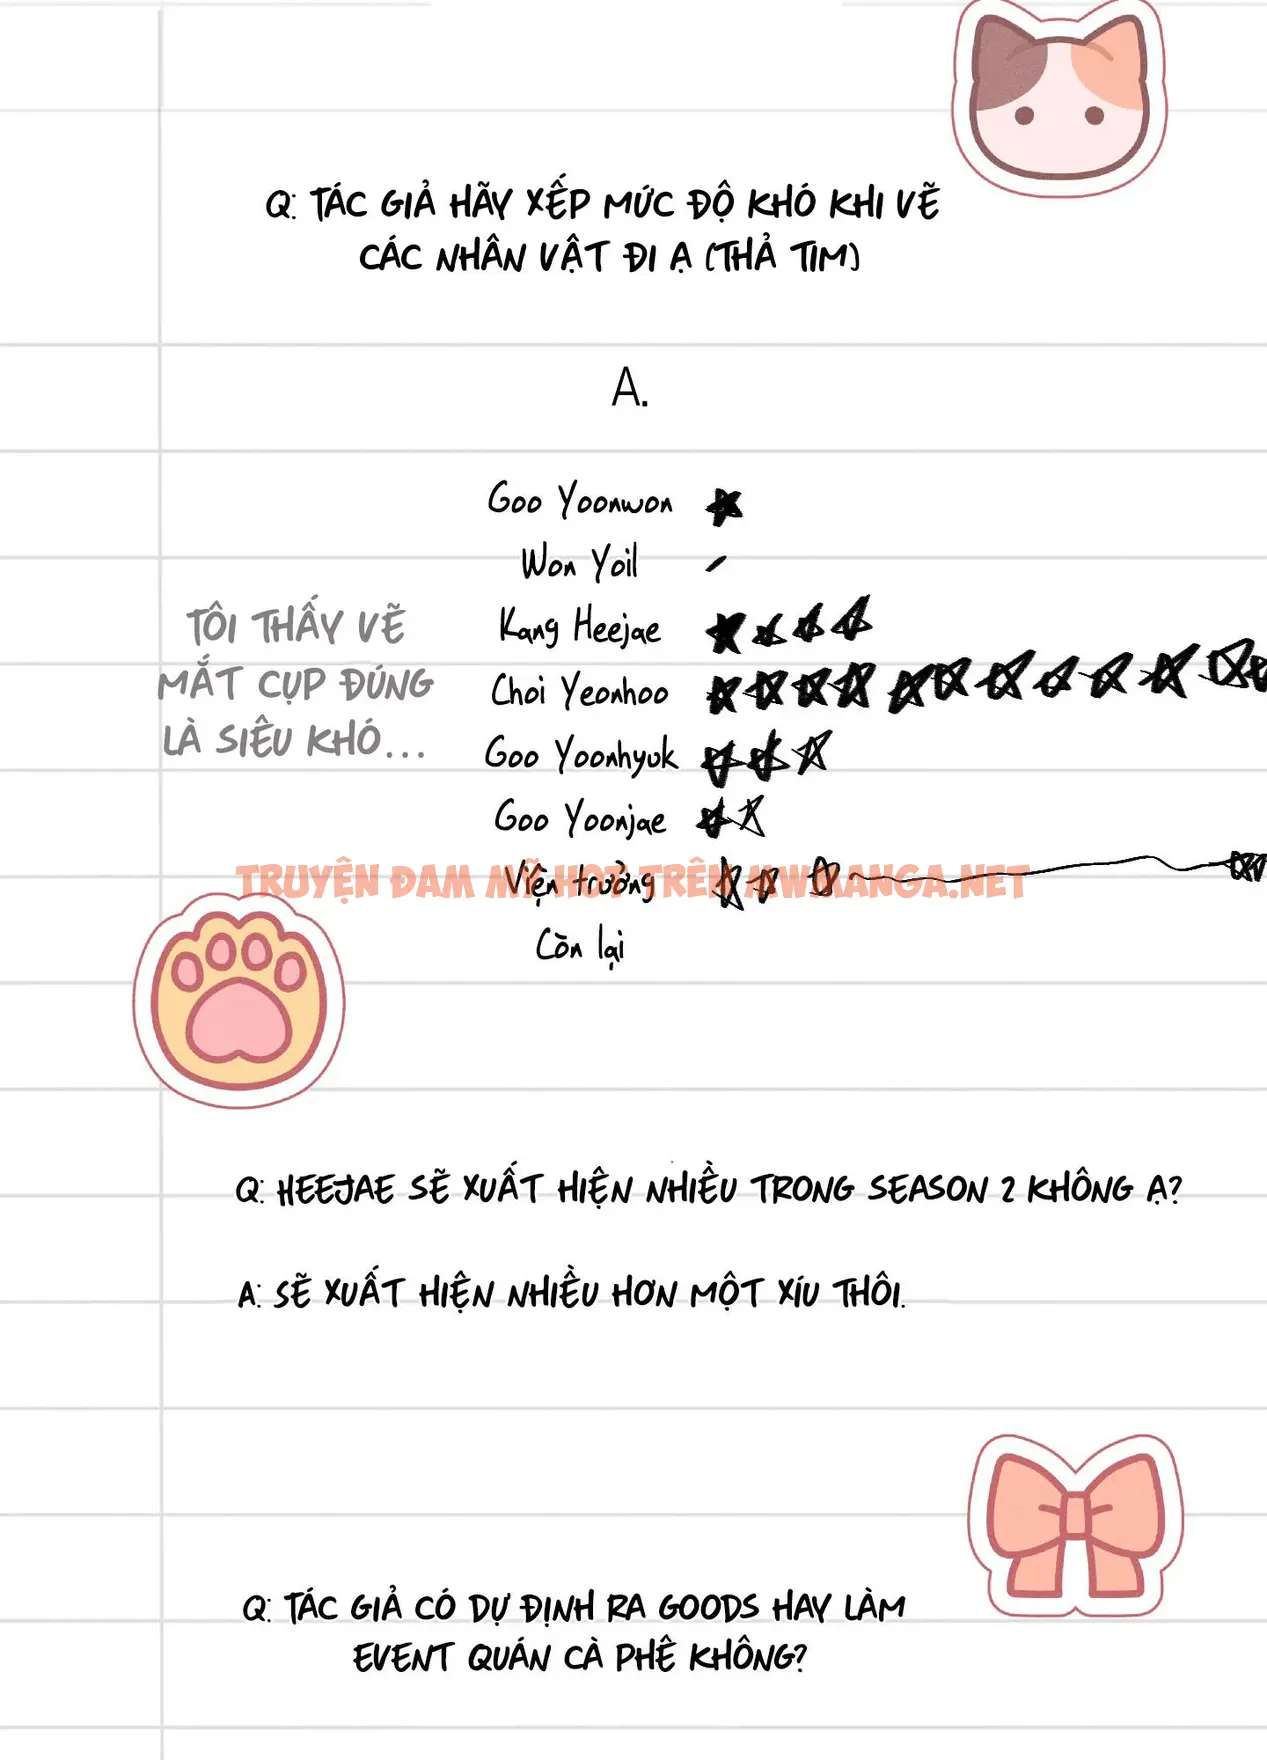 Q: TÁC GIẢ HÃY XẾP MỨC ĐỘ KHÓ KHI VẼ
CÁC NHÂN VẬT ĐI Ạ (THẢ TIM)
A.
Goo Yoonwon
Won Yoil
Kang Heejae
Choi Yeonhoo
Goo Yoonhyuk
Goo Yoonjae
Viện trưởng
Còn lại
TÔI THẤY VẼ
MẮT CỤP ĐÚNG
LÀ SIÊU KHÓ...
TRUYỆN ĐAM MĨ HOT TRÊN MWMANGA.NET
Q: HEEJAE SẼ XUẤT HIỆN NHIỀU TRONG SEASON 2 KHÔNG Ạ?
A: SẼ XUẤT HIỆN NHIỀU HƠN MỘT XÍU THÔI.
Q: TÁC GIẢ CÓ DỰ ĐỊNH RA GOODS HAY LÀM
EVENT QUÁN CÀ PHÊ KHÔNG?